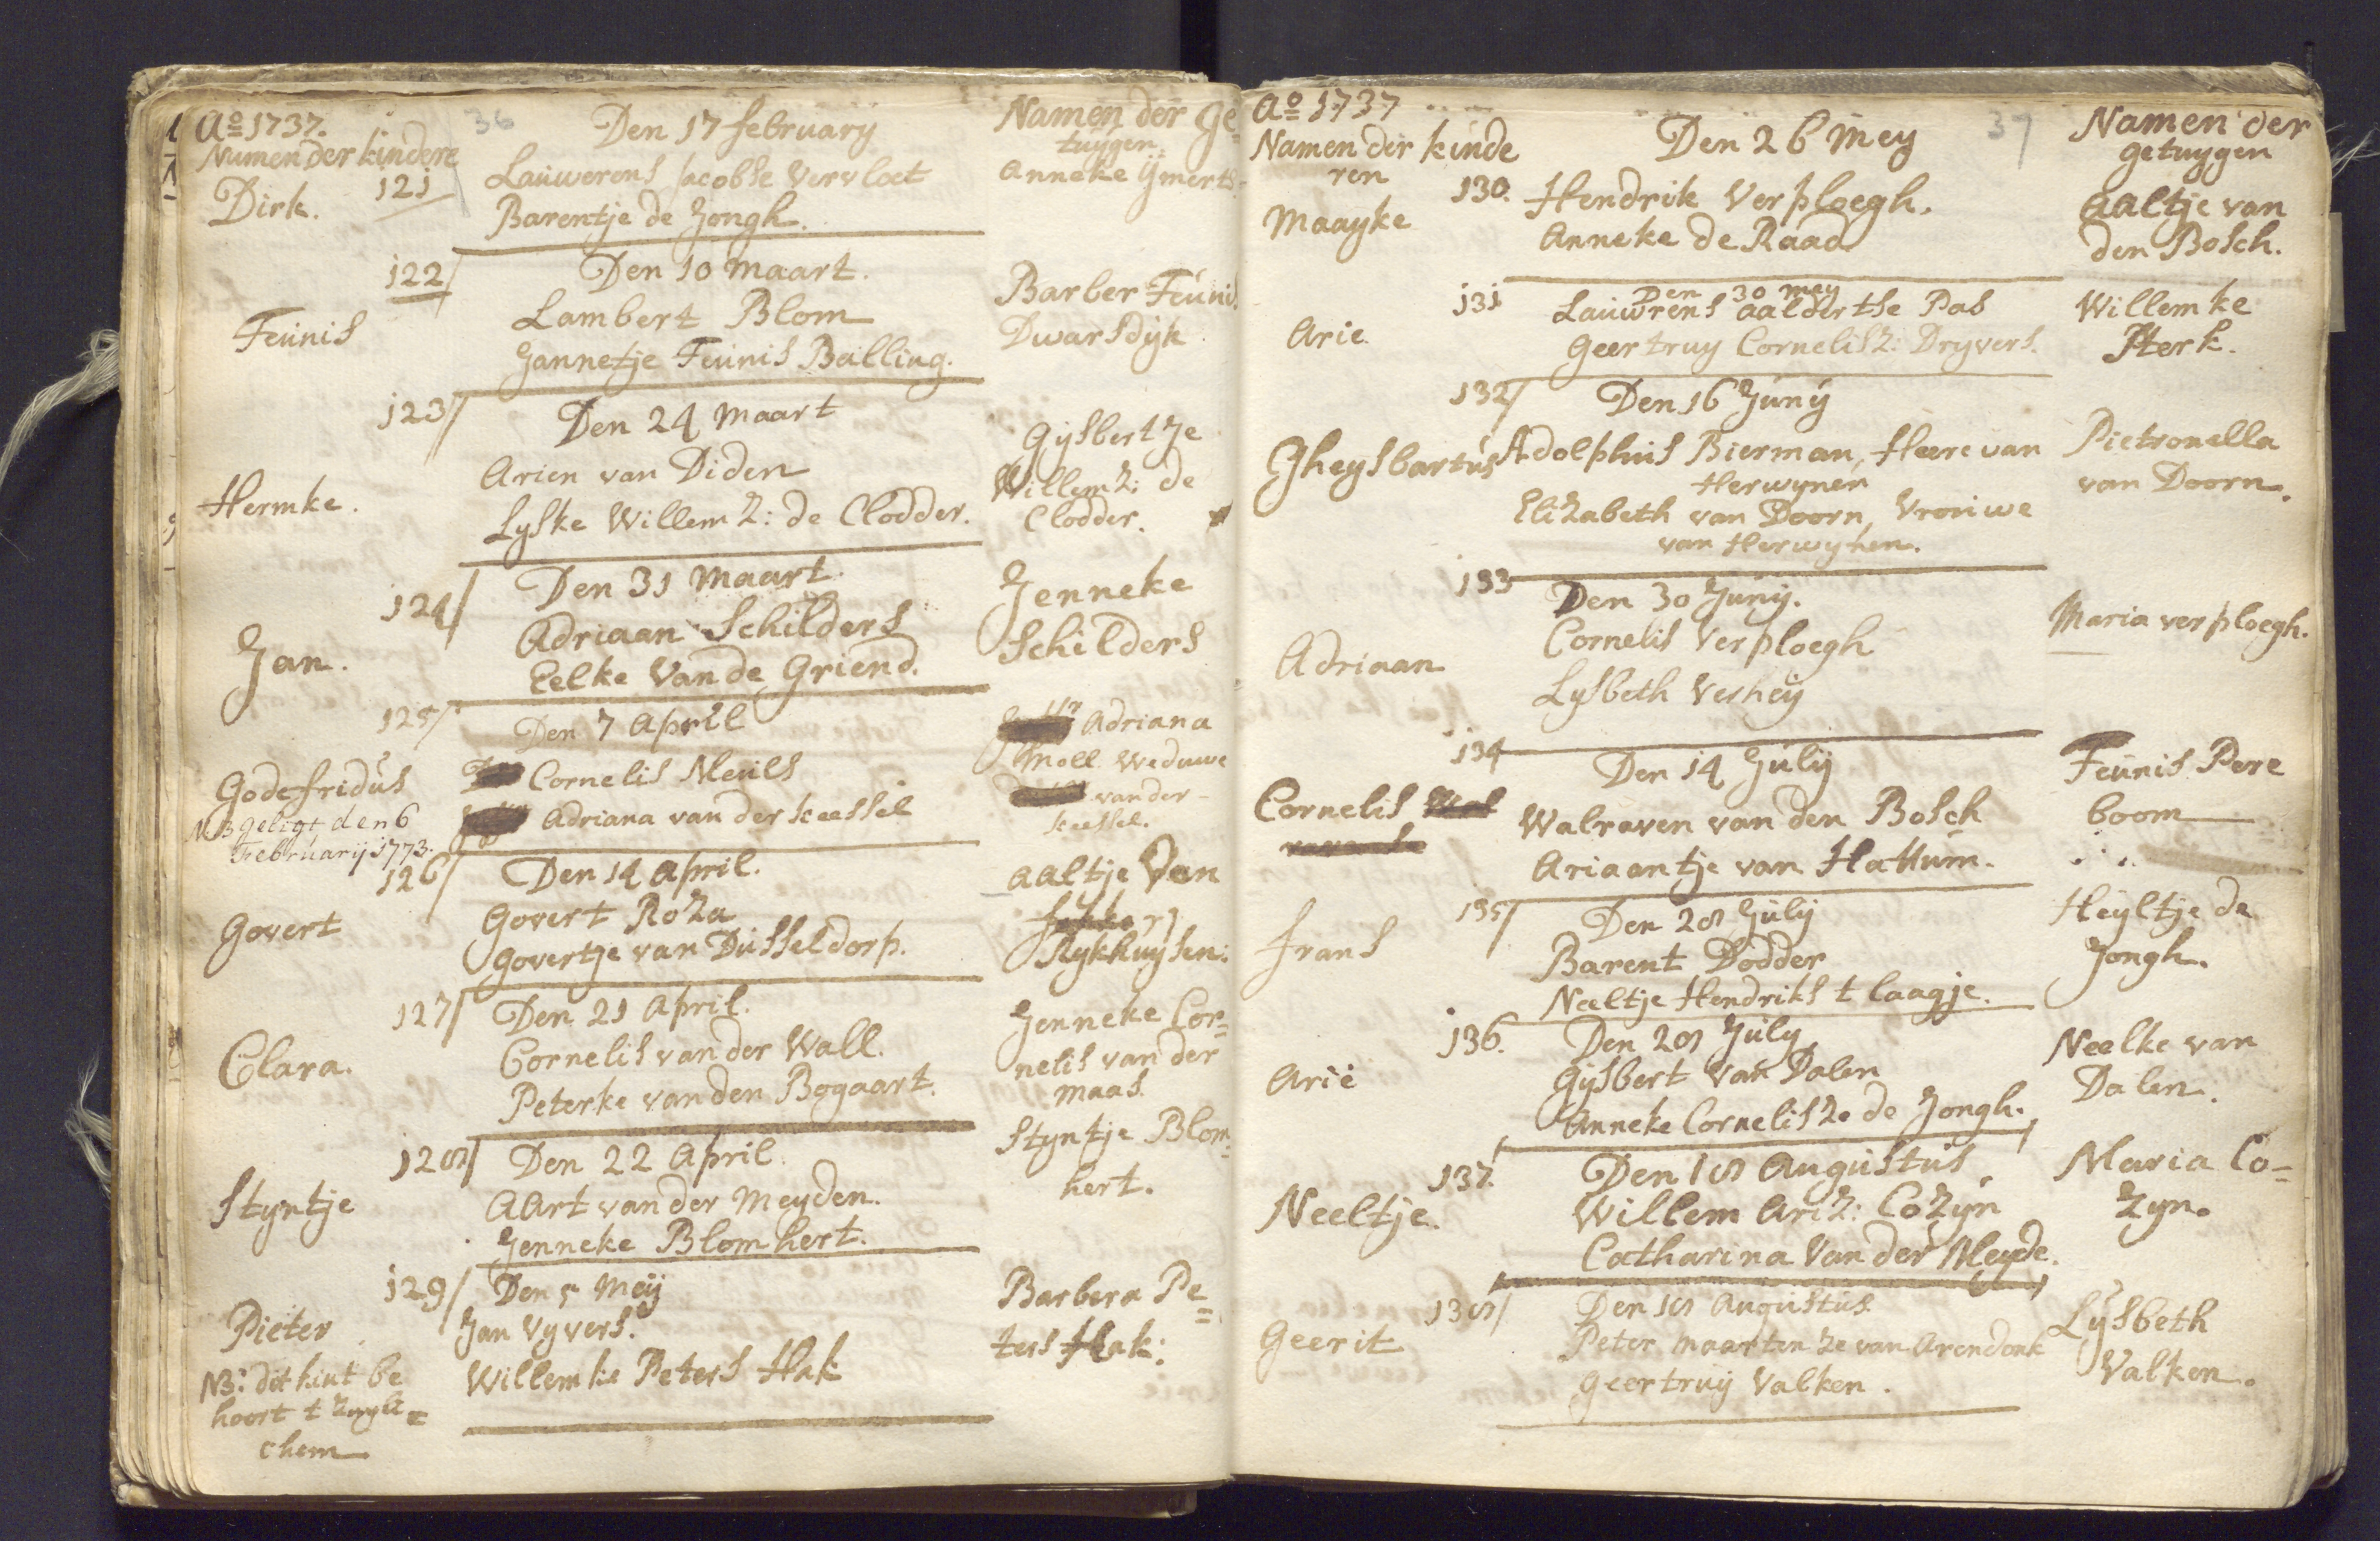 Ao 1737.
36
Den 17 february
Namen der Ge=
tuygen.
Namen der kindere
Dirk.
121
Lauwerens Jacobse Vervloet
Barentje de Jongh.
Anneke Ymerts
122
Den 10 Maart.
Teunis
Lambert Blom
Jannetje Teunis Balling.
Barber Teunis
Dwarsdyk
123
Den 24 Maart
Hermke.
Arien van Diden
Lyske Willemz: de Clodder.
Gysbertje
Willemz: de
Clodder.
124
Den 31 Maart
Jan.
Adriaan Schilders
Eelke Van de Griend.
Jenneke
Schilders
125
Den 7 April
Godefridus
NB geligt den 6
Februarij 1773.
Cornelis Meuls
Adriana van der Keessel
Adriana
Moll Weduwe
van der
Keessel.
126
Den 14 April.
Govert
Govert Roza
Govertje van Dusseldorp.
Aaltje Van
Rykhuysen:
127
Den 21 April.
Clara.
Cornelis van der Wall.
Peterke van den Bogaart.
Jenneke Cor=
nelis van der
Maas.
128
Den 22 April.
Styntje
Aart van der Meyden.
Jenneke Blomhert.
Styntje Blom=
hert.
129
Den 5 Meij
Pieter
NB: dit kint be
hoort t Zuyli=
chem
Jan Vyvers.
Willemke Peters Hak
Barbera Pe=
ters Hak:
Ao 1737
37
Den 26 Mey
Namen der
getuygen
Namen der kinde
ren
Maayke
130.
Hendrik Verploegh.
Anneke de Raad
Aaltje van
den Bosch.
131
Den 30 Mey
Arie
Lauwrens Aaldertse Pas
Geertruy Cornelisz: Dryvers.
Willemke
Sterk.
132
Den 16 Juny
Gheysbartus
Adolphus Bierman, Heere van
Herwynen
Elizabeth van Doorn, Vrouwe
van Herwynen.
Pietronella
van Doorn.
133
Den 30 Juny.
Adriaan
Cornelis Verploegh
Lysbeth Verhey
Maria verploegh.
134
Den 14 July
Cornelis
Walraven van den Bosch
Ariaantje van Hattum.
Teunis Pere
boom
135
Den 28 July
Frans
Barent Dodder
Neeltje Hendriks t Laagje.
Heyltje de
Jongh.
136.
Den 28 July
Arie
Gysbert van Dalen
Anneke Cornelisze de Jongh.
Neelke van
Dalen.
137.
Den 18 Augustus
Neeltje.
Willem Ariz: Cozyn
Catharina Van der Meyde.
Maria Co=
zyn.
138
Den 18 Augustus.
Geerit
Peter Maartenze van Arendonk
Geertruij Valken.
Lysbeth
Valken.